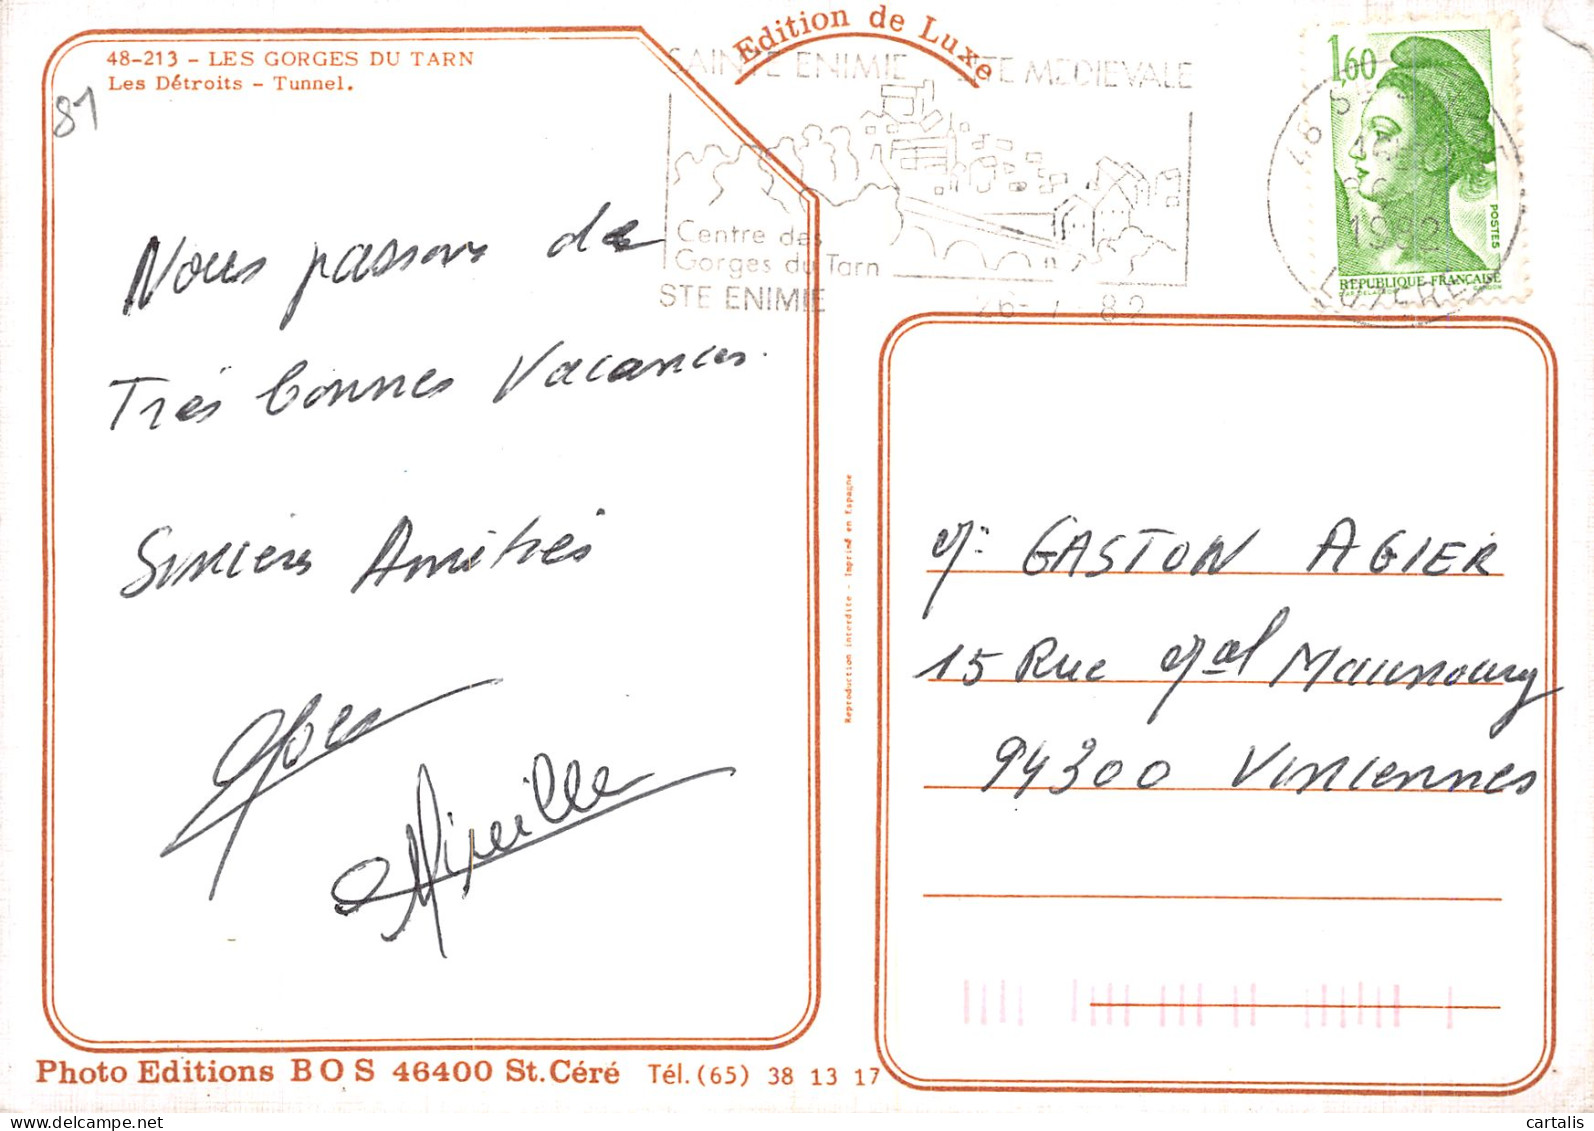 48-213 - LES GORGES DU TARN
Les Détroits - Tunnel.
81
Edition de Luxe
SAINTE ENIMIE CITE MEDIEVALE
Centre des
Gorges du Tarn
STE ENIMIE
26-7-82
1,60
POSTES
REPUBLIQUE FRANCAISE
48 S
1982
LOZERE
Nous passons de
Très bonnes Vacances.
Sincères Amitiés
Mireille
Reproduction interdite - Imprimé en Espagne
M: GASTON AGIER
15 Rue Mal Maunoury
94300 Vincennes
Photo Editions BOS 46400 St.Céré Tél.(65) 38 13 17
cartalis